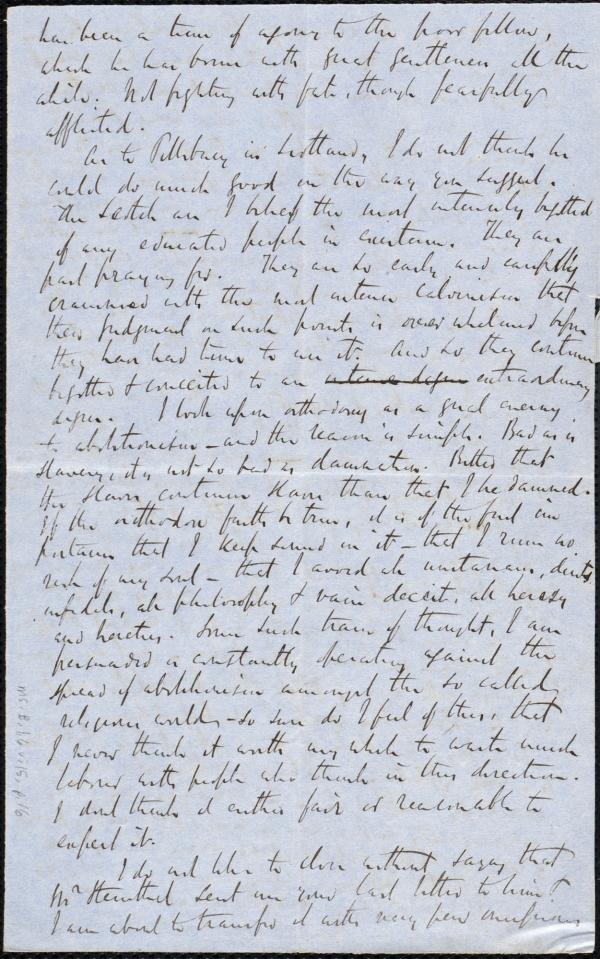 has been a time of agony to the poor fellow,
which he has borne with great gentleness all the
while. Not fighting with fate, though fearfully
afflicted.
As to Pillsbury in Scotland, I do not think he
could do much good in the way you suggest.
The Scotch are I believe the most intensely bigotted
of any educated people in existence. They are
past praying for. They are so early and carefully
crammed with the most intense Calvinism that
their judgment on such points is overwhelmed before
they have had time to use it. And so they continue
bigotted & conceited to an intense degree extraordinary
degree. I look upon orthodoxy as a great enemy
to abolitionism - and the reason is simple. Bad as is
slavery, it is not so bad as damnation. Better that
the slaves continue slaves than that I be damned.
If the orthodox faith be true, it is of the first im
portance that I keep sound in it - that I run no
risk of my soul - that I avoid all unitarians, deists
infidels, all philosophy & vain deceit, all heresy
and heretics. Some such train of thought, I am
persuaded is constantly operating against the
spread of abolitionism amongst the so called
religious world - so sure do I feel of this, that
I never think it worth my while to waste much
labour with people who think in this direction.
I don't think it either fair or reasonable to
expect it.
I do not like to close without saying that
Mr sent me your last letter to him.
I am about to transfer it with very few omissions
Ms. B. 1. 6 v. 15, p. 16